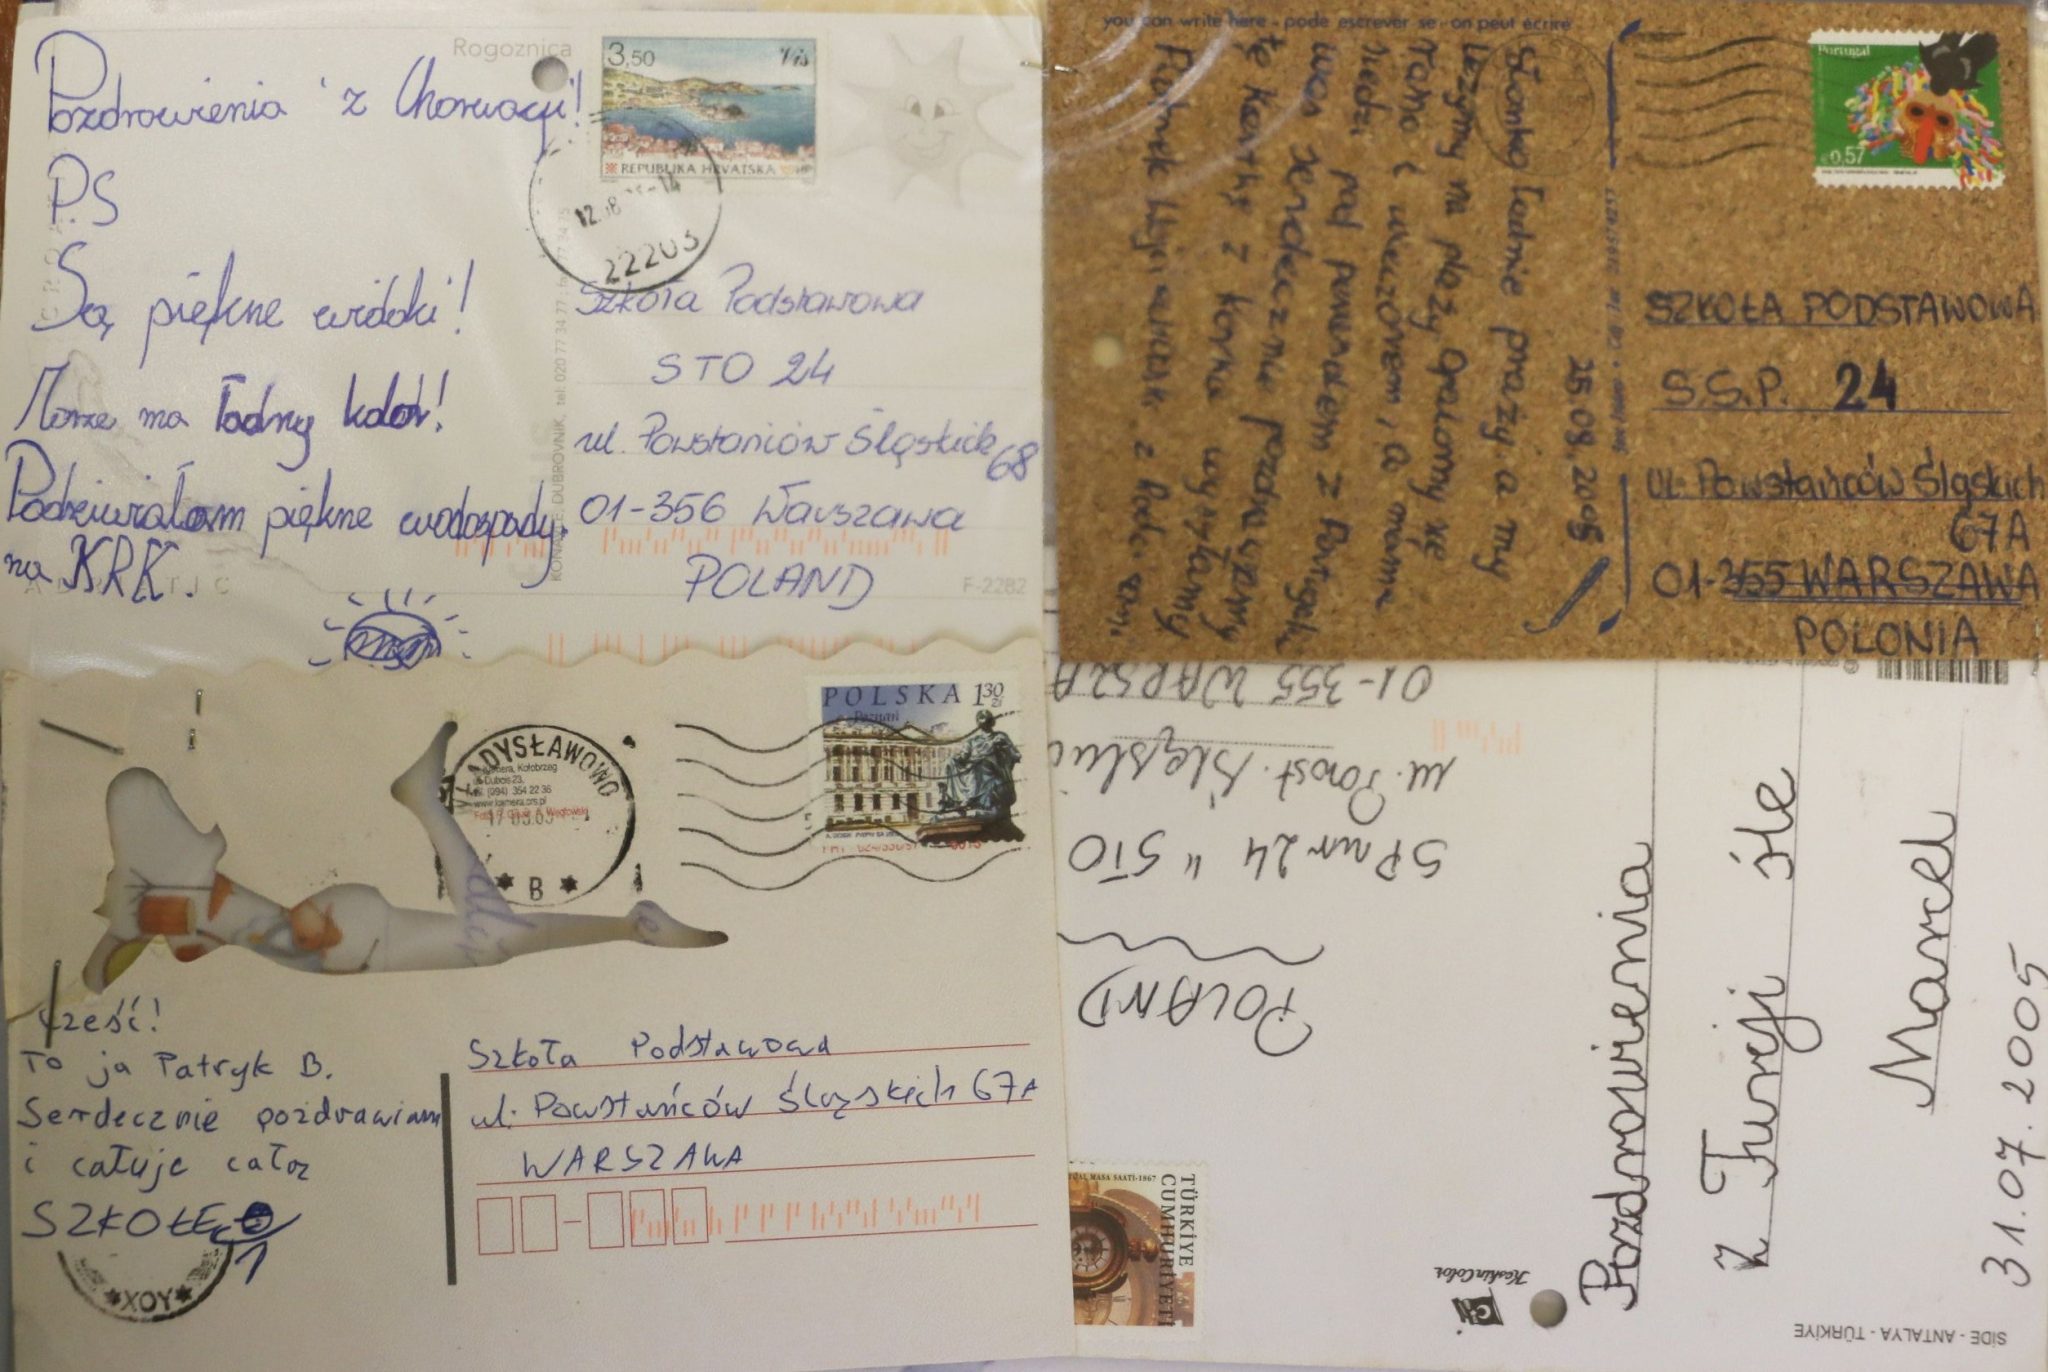 Rogoznica
Pozdrowienia z Chorwacji!
P.S
Są piękne widoki!
Morze ma ładny kolor!
Podziwiałam piękne wodospady
na KRK.
3,50 Vis
REPUBLIKA HRVATSKA
22203
Szkoła Podstawowa
STO 24
ul. Powstańców Śląskich 68
01-356 Warszawa
POLAND
F-2282
you can write here - pode escrever se - on peut écrire
25.08.2005
Słonko ładnie praży, a my
leżymy na plaży. Opalamy się
rano i wieczorem, a mama
siedzi pod parasolem. z Portugalii
was serdecznie pozdrawiamy
tę kartkę z korka wysyłamy
Portugal
€0,57
SZKOŁA PODSTAWOWA
S.S.P. 24
ul. Powstańców Śląskich
67A
01-355 WARSZAWA
POLONIA
WŁADYSŁAWOWO
Kołobrzeg
B
POLSKA 130 zł
Poznań
Cześć!
To ja Patryk B.
Serdecznie pozdrawiam
i całuje całą
SZKOŁĘ
Szkoła Podstawowa
ul. Powstańców Śląskich 67A
WARSZAWA
*XOY*
POLAND
SP nr 24 "STO
ul. Powst. Śląski
01-355 WARSZA
TÜRKİYE
CUMHURİYETİ
MASA SAATİ-1867
Keskin Color
Pozdrowienia
z Turcji śle
Marcel
31.07.2005
SİDE - ANTALYA - TÜRKİYE